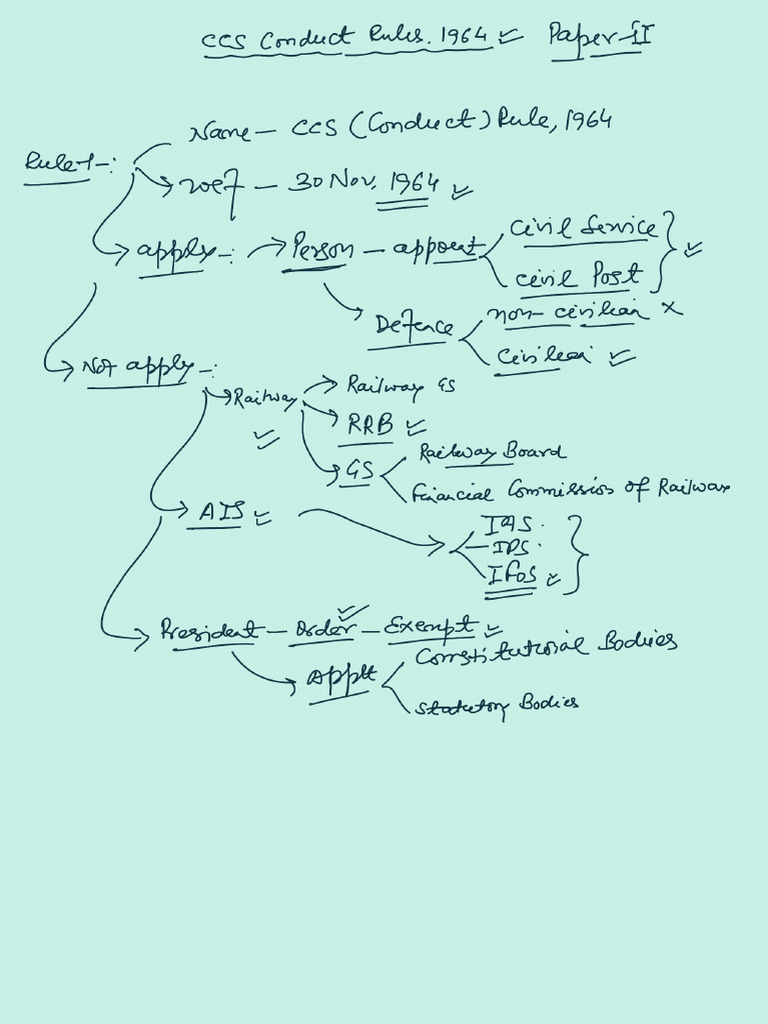 CCS Conduct Rules. 1964 Paper-II
Name - CCS (Conduct) Rule, 1964
Rule-1-:
wef - 30 Nov. 1964
apply-: Person - appoint civil Service
civil Post
Defence non-civilian
civilian
Not apply-:
Railway Railway GS
RRB
GS Railway Board
Financial Commission of Railway
AIS IAS.
IPS.
IFoS
President - Order - Exempt
Constitutional Bodies
Appt
Statutory Bodies